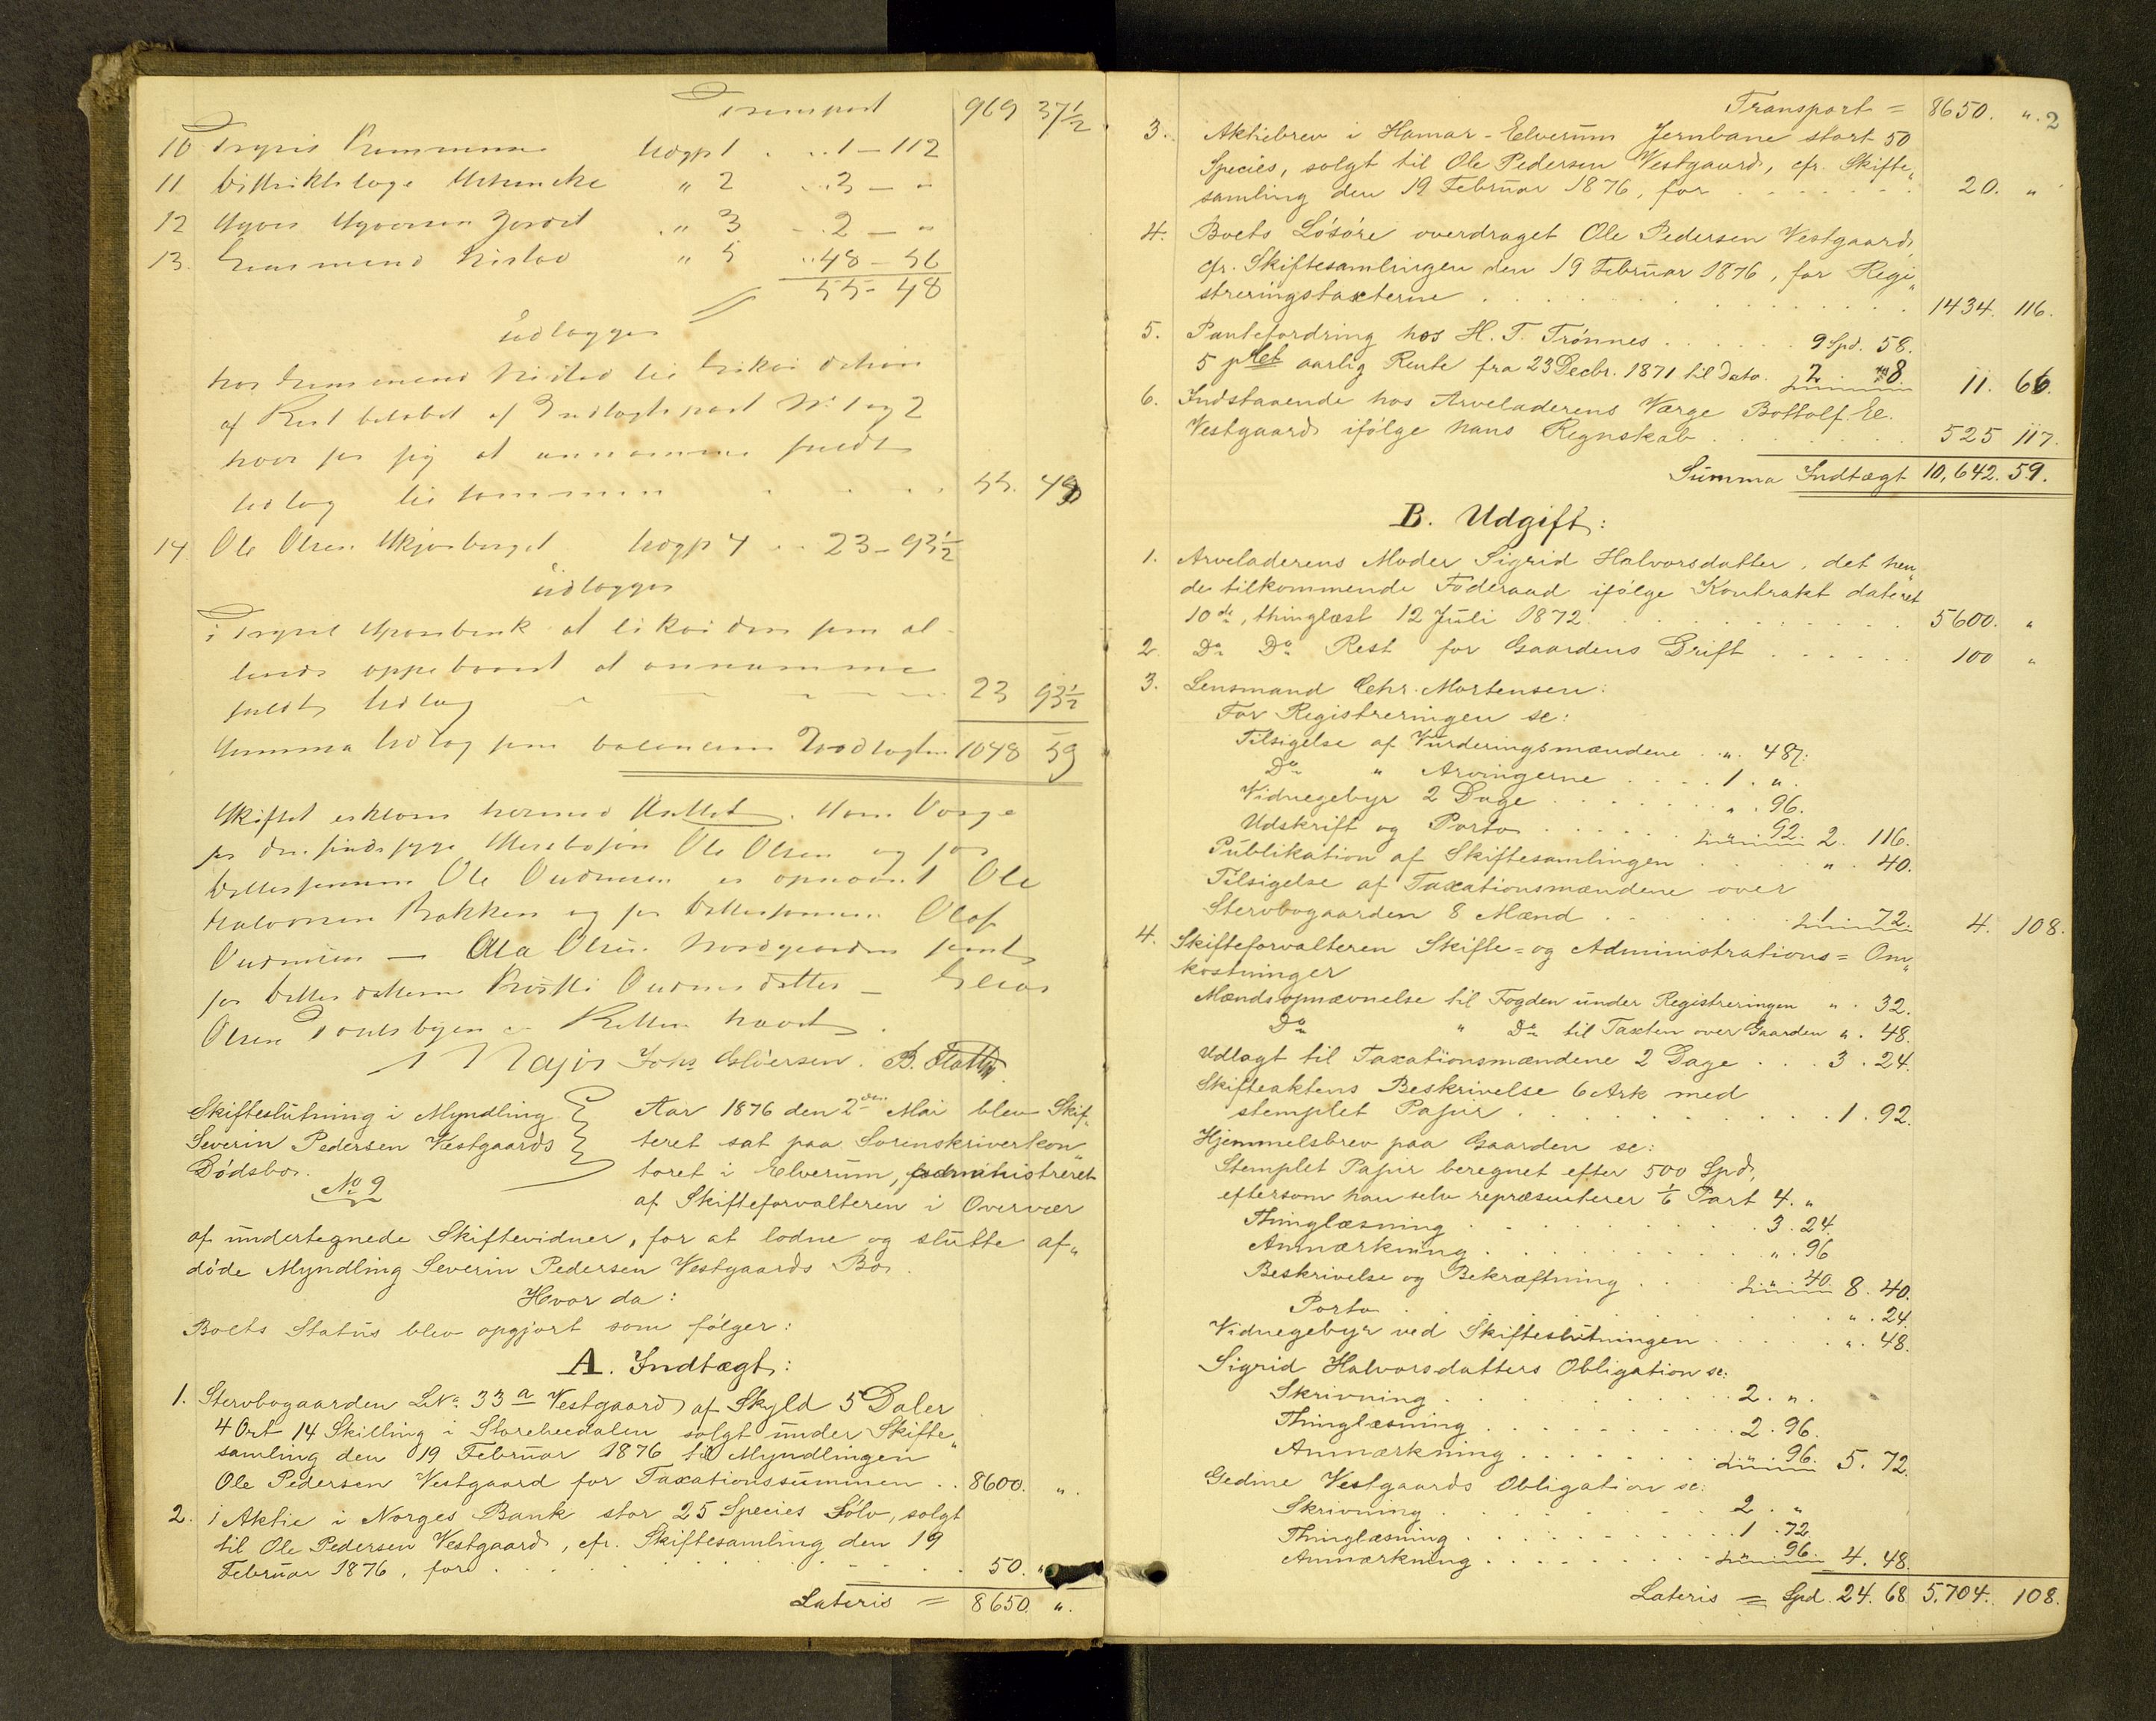 Transport 969 37½
10 Trysis Kommune Udgp 1 . . . 1 – 112
11 Distriktslæge " 2 . . 3 – "
12 " 3 – . 2 – "
13. Lensmand " 5 . . 48 – 56
55 – 48
Udlægges
hos Lensmand
af Restbeløbet af Indtægtspost No 1 og 2
hvor for sig at annamme fuldt
Udlæg tilsammen . . . . 55. 48
14 Ole Olsen Udgp 4 . . 23 – 93½
Udlægges
i Trysil Sparebank at
oppebaaret at annamme
fuldt Udlæg 23 93½
Summa Udlæg som balancerer Indtægten 1048 59
Skiftet erklæres hermed sluttet. Som Værge
for den sindssyge Ole Olsen og for
Ole er opnævnt Ole
Halvorsen Bakken og for Olof
– Ola Olsen Nordgaarden samt
for –
Olsen Retten hævet.
Johs Gløersen. B.
Skifteslutning i Myndling
Severin Pedersen Vestgaards
Dødsbo.
No 9
Aar 1876 den 2den Mai blev Skif„
teret sat paa Sorenskriverkon„
toret i Elverum, administreret
af Skifteforvalteren i Overvær
af undertegnede Skiftevidner, for at lodne og slutte af„
døde Myndling Severin Pedersen Vestgaards Bo.
Hvor da:
Boets Status blev opgjort som følger:
A. Indtægt:
1. Stervbogaarden LNo 33a Vestgaard af Skyld 5 Daler
4 Ort 14 Skilling i Storelvedalen solgt under Skifte„
samling den 19 Februar 1876 til Myndlingen
Ole Pedersen Vestgaard for Taxationssummen . . 8600. ".
2. 1 Aktie i Norges Bank stor 25 Species Sølv, solgt
til Ole Pedersen Vestgaard, cfr. Skiftesamling den 19
Februar 1876, for . . . . . . . . 50. "
Lateris = 8650. ".
2
Transport = 8650. ".
3. Aktiebrev i Hamar-Elverum Jernbane stort 50
Species, solgt til Ole Pedersen Vestgaard, cfr. Skifte„
samling den 19 Februar 1876, for . . . . . . . 20. "
4. Boets Løsøre overdraget Ole Pedersen Vestgaard,
cfr. Skiftesamlingen den 19 Februar 1876, for Regi„
streringstaxterne . . . . . . . . . . 1434. 116.
5. Pantefordring hos H. T. Trønnes . . . . . 9 Spd. 58.
5 pCt aarlig Rente fra 23 Decbr. 1871 til Dato. 2 " 8. 11. 66.
6. Indstaaende hos Arveladerens Værge Bottolf El.
Vestgaard ifølge hans Regnskab . . . . . . . 525 117.
Summa Indtægt 10,642. 59.
B. Udgift:
1. Arveladerens Moder Sigrid Halvorsdatter, det hen„
de tilkommende Føderaad ifølge Kontrakt dateret
10de, thinglæst 12 Juli 1872 . . . . . . . . 5600. "
2. Do Do Rest for Gaardens Drift . . . . . . 100 "
3. Lensmand Chr. Mortensen:
For Registreringen sc:
Tilsigelse af Vurderingsmændene . ". 48.
Do " Arvingerne . . . . 1. ".
Vidnegebyr 2 Dage . . . . . . . ". 96.
Udskrift og Porto . . . . . . ". 92. 2. 116.
Publikation af Skiftesamlingen . . . . . ". 40.
Tilsigelse af Taxationsmændene over
Stervbogaarden 8 Mænd . . . . . . 1. 72. 4. 108.
4. Skifteforvalteren Skifte- og Administrations-Om„
kostninger
Mændsopnævnelse til Fogden under Registreringen ". 32.
Do " Do til Taxten over Gaarden ". 48.
Udlagt til Taxationsmændene 2 Dage . . . 3. 24.
Skifteaktens Beskrivelse 6 Ark med
stemplet Papir . . . . . . . . . . 1. 92.
Hjemmelsbrev paa Gaarden sc:
Stemplet Papir beregnet efter 500 Spd,
eftersom han selv repræsenterer 1/6 Part 4. "
Thinglæsning . . . . . . . . 3. 24.
Anmærkning . . . . . . . . ". 96
Beskrivelse og Bekræftning . . . . ". 40. 8. 40.
Porto . . . . . . . . . . ". 24.
Vidnegebyr ved Skifteslutningen . . . . . ". 48.
Sigrid Halvorsdatters Obligation sc:
Skrivning . . . . . . . . 2. ".
Thinglæsning . . . . . . . . 2. 96.
Anmærkning . . . . . . . . ". 96. 5. 72.
Gedine Vestgaards Obligation sc:
Skrivning . . . . . . . . 2. "
Thinglæsning . . . . . . . . 1. 72
Anmærkning . . . . . . . . ". 96. 4. 48.
Lateris = Spd. 24. 68 5,704. 108.